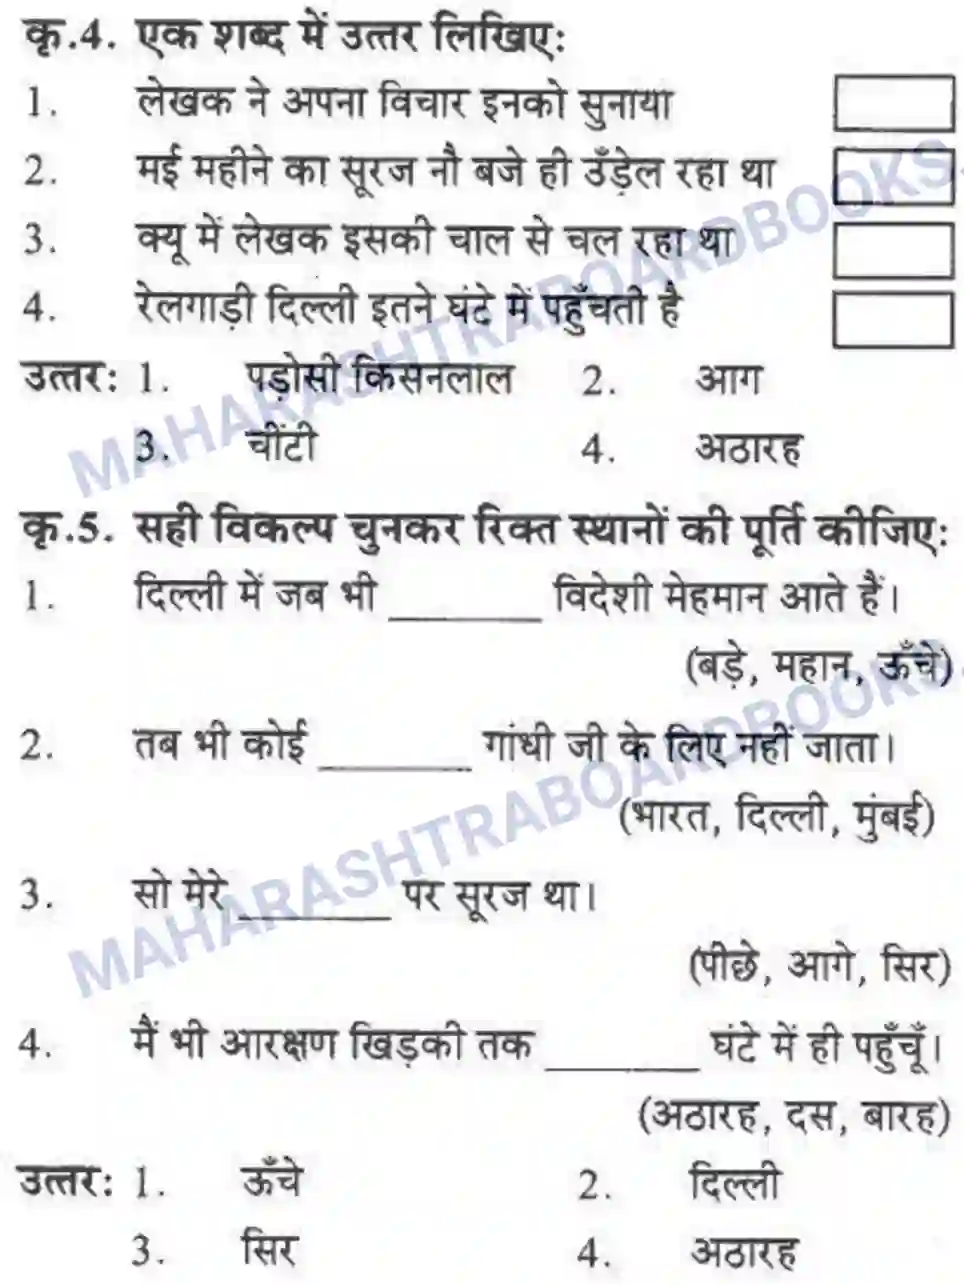 कृ.4. एक शब्द में उत्तर लिखिए:
1. लेखक ने अपना विचार इनको सुनाया
2. मई महीने का सूरज नौ बजे ही उँड़ेल रहा था
3. क्यू में लेखक इसकी चाल से चल रहा था
4. रेलगाड़ी दिल्ली इतने घंटे में पहुँचती है
उत्तर: 1. पड़ोसी किसनलाल 2. आग
3. चींटी 4. अठारह
MAHARASHTRABOARDBOOKS
कृ.5. सही विकल्प चुनकर रिक्त स्थानों की पूर्ति कीजिए:
1. दिल्ली में जब भी ________ विदेशी मेहमान आते हैं।
(बड़े, महान, ऊँचे)
2. तब भी कोई ________ गांधी जी के लिए नहीं जाता।
(भारत, दिल्ली, मुंबई)
3. सो मेरे ________ पर सूरज था।
(पीछे, आगे, सिर)
MAHARASHTRABOARDBOOKS
4. मैं भी आरक्षण खिड़की तक ________ घंटे में ही पहुँचूँ।
(अठारह, दस, बारह)
उत्तर: 1. ऊँचे 2. दिल्ली
3. सिर 4. अठारह